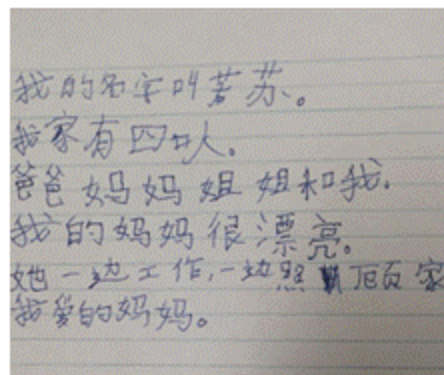 我的名字叫若苏。
我家有四口人.
爸爸妈妈姐姐和我.
我的妈妈很漂亮。
她一边工作,一边照顾家
我爱的妈妈。